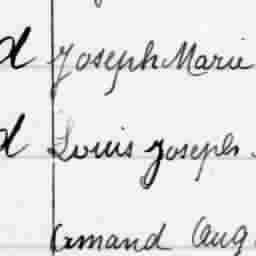 d Joseph Marie
d Louis Joseph.
Armand Aug